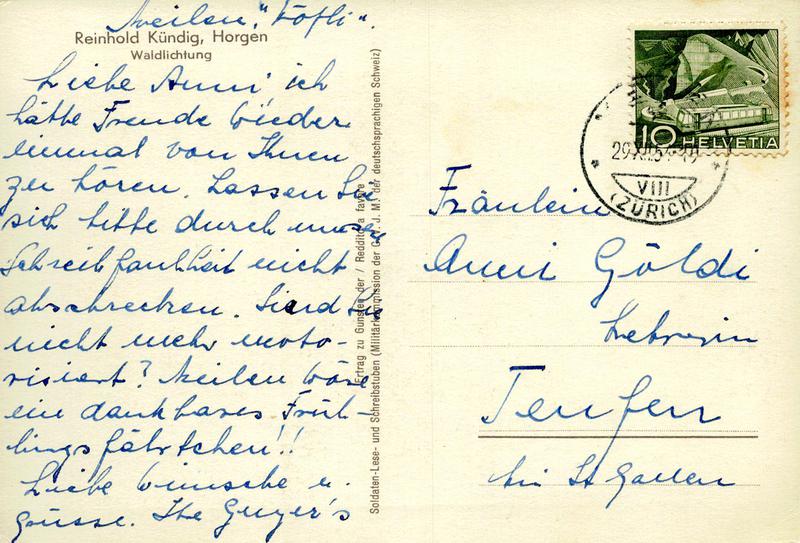 Meilen, "Töfli".
Reinhold Kündig, Horgen
Waldlichtung
Liebe Anni, ich
hätte Freude wieder
einmal von Ihnen
zu hören. Lassen Sie
sich bitte durch unsere
Schreibfaulheit nicht
abschrecken. Sind Sie
nicht mehr moto-
risiert? Meilen wäre
ein dankbares Früh-
lingsfährtchen!!
Liebe Wünsche u.
Grüsse. Ihre Guyer's
Ertrag zu Gunsten der / Reddito a favore
Soldaten-Lese- und Schreibstuben (Militärkommission der C. V. J. M. der deutschsprachigen Schweiz)
10 HELVETIA
29.XII.54-19
VIII
(ZÜRICH)
Fräulein
Anni Göldi
Lehrerin
Teufen
bei St Gallen